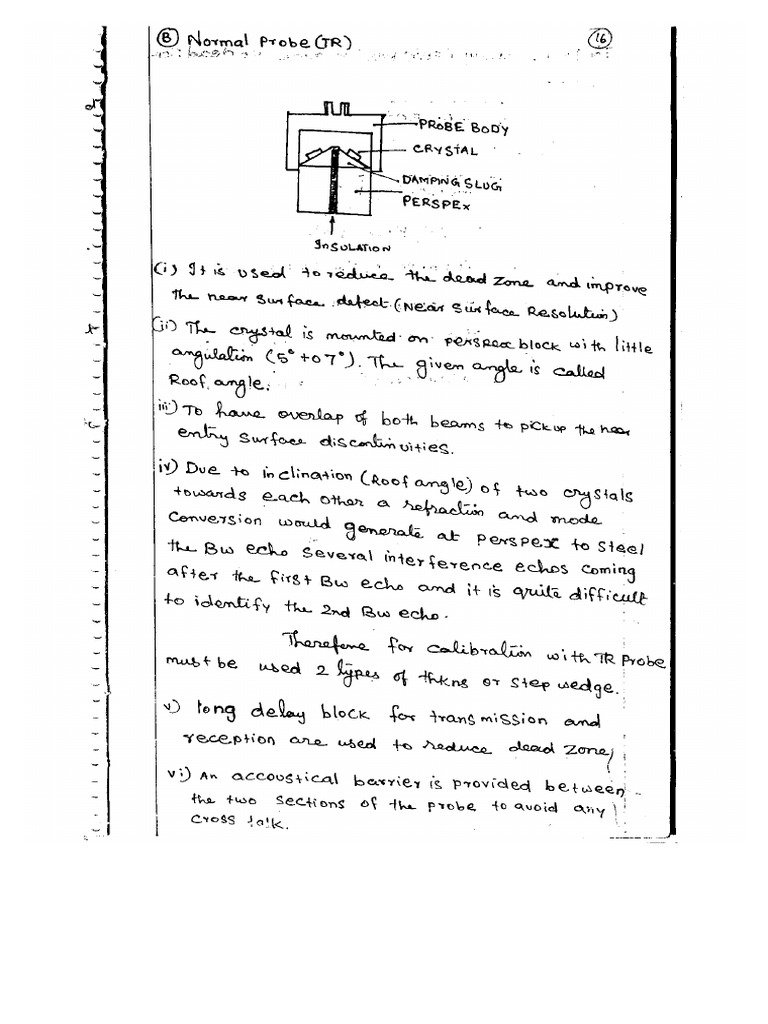 Ⓑ Normal Probe (TR)
16
PROBE BODY
CRYSTAL
DAMPING SLUG
PERSPEX
INSULATION
(i) It is used to reduce the dead zone and improve
the near surface defect (Near Surface Resolution)
(ii) The crystal is mounted on perspex block with little
angulation (5° to 7°). The given angle is called
Roof angle.
iii) To have overlap of both beams to pick up the near
entry surface discontinuities.
iv) Due to inclination (Roof angle) of two crystals
towards each other a refraction and mode
conversion would generate at perspex to Steel
the BW echo several interference echos coming
after the first BW echo and it is quite difficult
to identify the 2nd BW echo.
Therefore for calibration with TR Probe
must be used 2 types of thkns or step wedge.
v) long delay block for transmission and
reception are used to reduce dead zone,
vi) An accoustical barrier is provided between
the two sections of the probe to avoid any
cross talk.